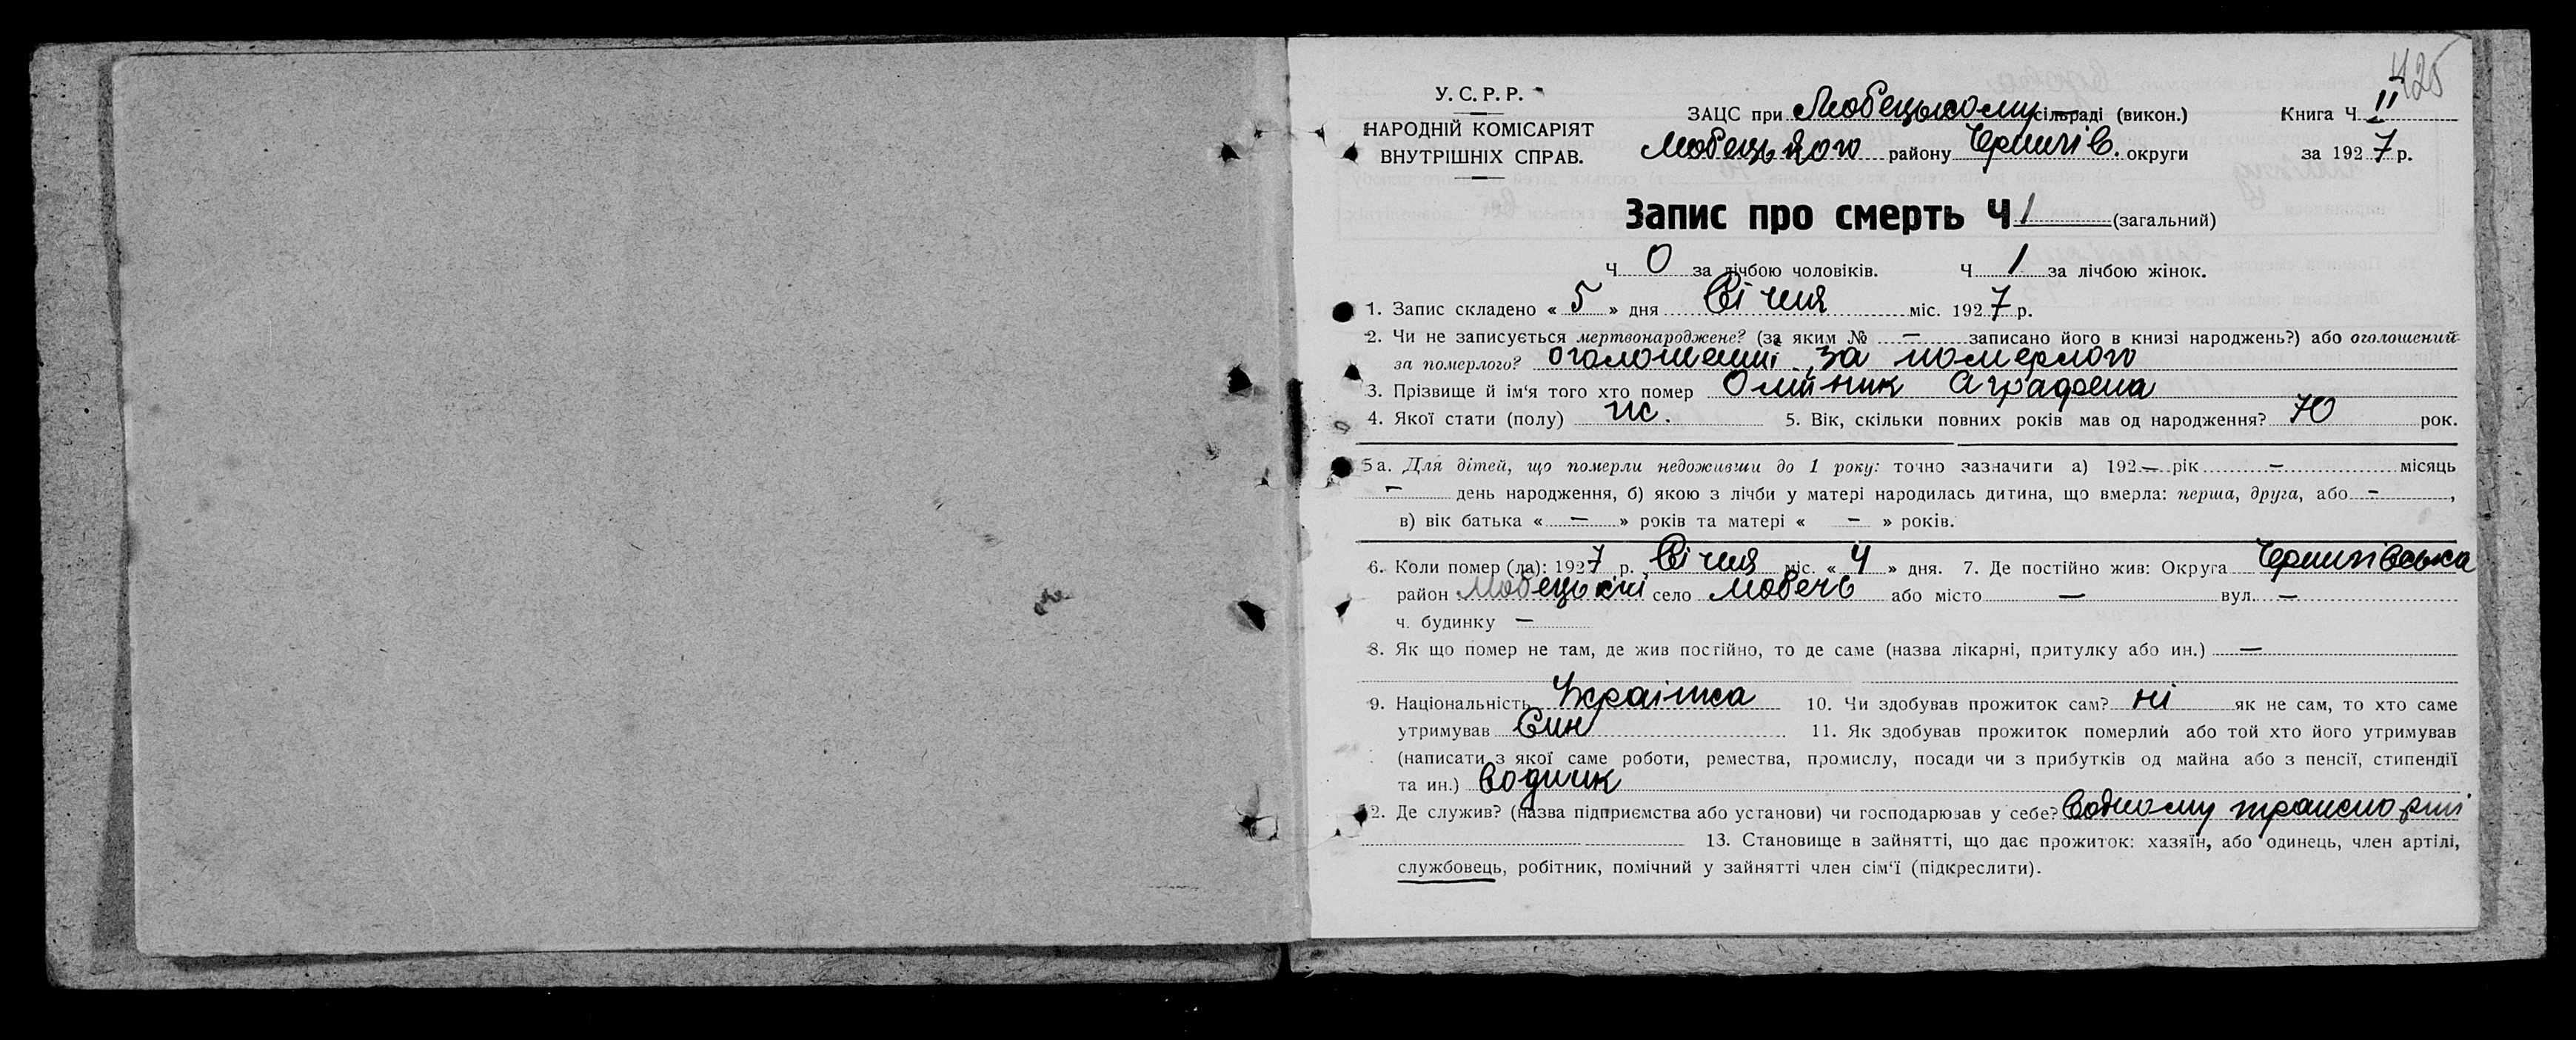 425
У. С. Р. Р.
НАРОДНІЙ КОМІСАРІЯТ
ВНУТРІШНІХ СПРАВ.
ЗАЦС при Любецькому сільраді (викон.)
Любецького району Чернігів. округи
Книга Ч. II
за 1927 р.
Запис про смерть Ч 1 (загальний)
Ч 0 за лічбою чоловіків. Ч 1 за лічбою жінок.
1. Запис складено « 5 » дня Січня міс. 1927 р.
2. Чи не записується мертвонароджене? (за яким № — записано його в книзі народжень?) або оголошений
за померлого? оголошенні за померлого
3. Прізвище й ім'я того хто помер Олійник Аграфена
4. Якої стати (полу) ж. 5. Вік, скільки повних років мав од народження? 70 рок.
5а. Для дітей, що померли недоживши до 1 року: точно зазначити а) 192 — рік — місяць
— день народження, б) якою з лічби у матері народилась дитина, що вмерла: перша, друга, або — ,
в) вік батька « — » років та матері « — » років.
6. Коли помер (ла): 1927 р. Січня міс. « 4 » дня. 7. Де постійно жив: Округа Чернігівська
район Любецькій село Любеч або місто — вул. —
ч. будинку —
8. Як що помер не там, де жив постійно, то де саме (назва лікарні, притулку або ин.) —
9. Національність Українка 10. Чи здобував прожиток сам? ні як не сам, то хто саме
утримував Син 11. Як здобував прожиток померлий або той хто його утримував
(написати з якої саме роботи, ремества, промислу, посади чи з прибутків од майна або з пенсії, стипендії
та ин.) водник
12. Де служив? (назва підприємства або установи) чи господарював у себе? Водному транспорті
13. Становище в зайнятті, що дає прожиток: хазяїн, або одинець, член артілі,
службовець, робітник, помічний у зайнятті член сім'ї (підкреслити).